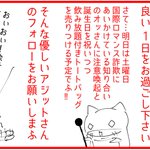 良い1日をお過ごし下さい
さて!明日は土曜日
国際ロマンス詐欺に
あいかけている知り合い
のカオリさんに注意喚起と
誕生日を祝いに
飲み放題付きトートバッグ
を売りつける予定でふ!!
そんな優しいアジットさん
のフォローをお願いしまふ